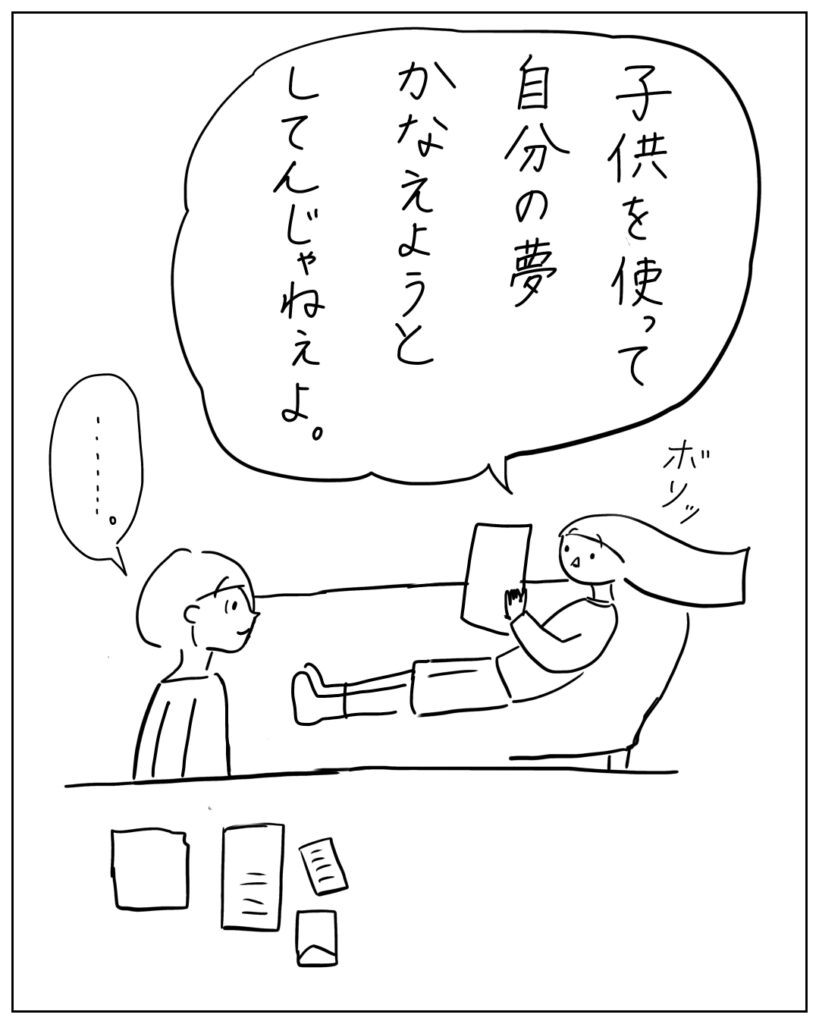 子供を使って
自分の夢
かなえようと
してんじゃねぇよ。
ボリッ
………。